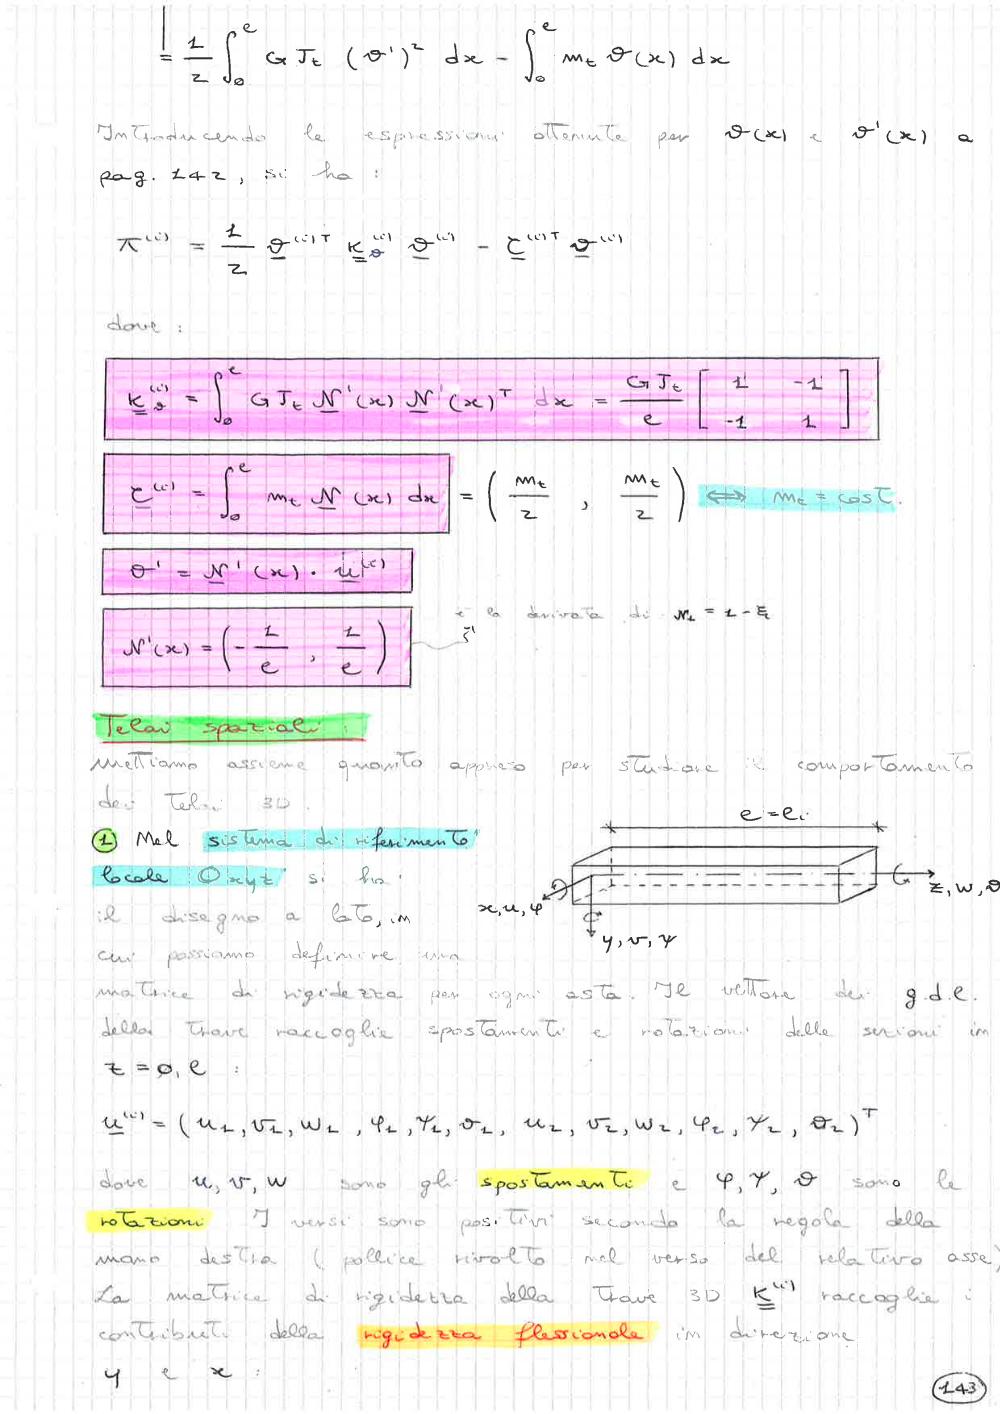 = 1/2 ∫₀ˡ G Jt (ϑ')² dx - ∫₀ˡ mt ϑ(x) dx
Introducendo le espressioni ottenute per ϑ(x) e ϑ'(x) a
pag. 142, si ha :
π⁽ⁱ⁾ = 1/2 ϑ⁽ⁱ⁾ᵀ K_ϑ⁽ⁱ⁾ ϑ⁽ⁱ⁾ - τ⁽ⁱ⁾ᵀ ϑ⁽ⁱ⁾
dove :
K_ϑ⁽ⁱ⁾ = ∫₀ˡ G Jt N'(x) N'(x)ᵀ dx = G Jt / l [ 1 -1 ; -1 1 ]
τ⁽ⁱ⁾ = ∫₀ˡ mt N(x) dx = ( mt/2 , mt/2 ) ⟺ mt = cost.
ϑ' = N'(x) · u⁽ⁱ⁾
è la derivata di N1 = 1 - ξ
N'(x) = ( - 1/l , 1/l )
Telai spaziali :
Mettiamo assieme quanto appreso per studiare il comportamento
dei telai 3D.
l = li
① Nel sistema di riferimento
locale Oxyz si ha
z, w, ϑ
x, u, φ
il disegno a lato, in
y, v, ψ
cui possiamo definire una
matrice di rigidezza per ogni asta. Il vettore dei g.d.l.
della trave raccoglie spostamenti e rotazioni delle sezioni in
z = 0, l :
u⁽ⁱ⁾ = ( u1, v1, w1, φ1, ψ1, ϑ1, u2, v2, w2, φ2, ψ2, ϑ2 )ᵀ
dove u, v, w sono gli spostamenti e φ, ψ, ϑ sono le
rotazioni. I versi sono positivi secondo la regola della
mano destra ( pollice rivolto nel verso del relativo asse)
La matrice di rigidezza della trave 3D K⁽ⁱ⁾ raccoglie i
contributi della rigidezza flessionale in direzione
y e x :
143